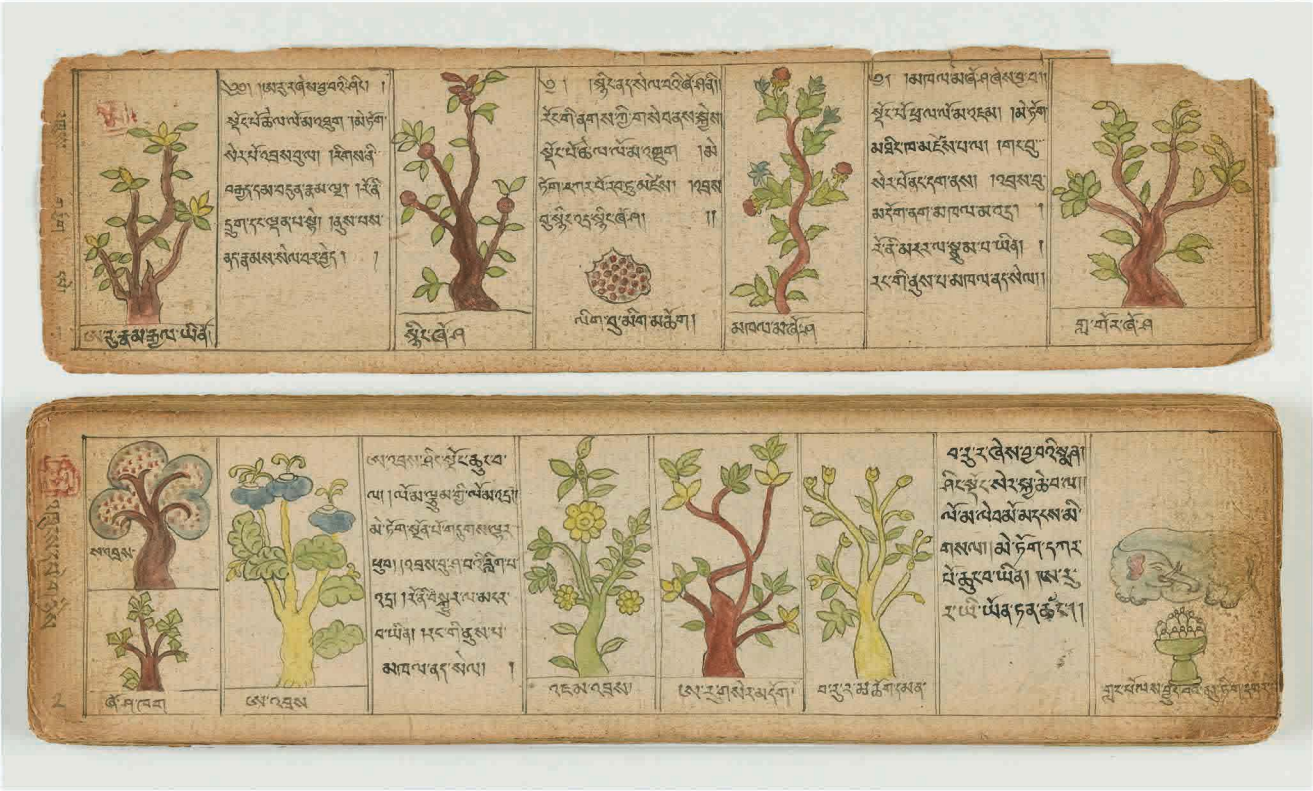 ༄༅། །ཨ་རུ་ར་ཞེས་བྱ་བའི་ཤིང་ །
སྡོང་པོ་ཆེ་ལ་ལོ་མ་འཐུག །མེ་ཏོག་
སེར་པོ་འབྲས་བུ་ལ། །རིགས་ནི་
བརྒྱད་དམ་བདུན་རྣམ་ལྔ། །རོ་ནི་
དྲུག་དང་ལྡན་པ་སྟེ། །ནུས་པས་
ནད་རྣམས་སེལ་བར་བྱེད། །
ཨ་རུ་རྣམ་རྒྱལ་ཡིནོ།
སྙིང་ཞོ་ཤ
༄། །སྙིང་ནད་སེལ་བའི་ཞོ་ཤ་ནི།
རོང་གི་ནགས་ཀྱི་གསེབ་ནས་སྐྱེས
སྡོང་པོ་ཆེ་ལ་ལོ་མ་འཐུག །མེ
ཏོག་དཀར་པོ་རབ་ཏུ་མཛེས། །འབྲས
བུ་སྙིང་འདྲ་སྙིང་ཞོ་ཤ། །།
ལིག་བུ་མིག་མཆོག།
མཁལ་མ་ཞོ་ཤ
༄། །མཁལ་མ་ཞོ་ཤ་ཞེས་བྱ་བ།།
སྡོང་པོ་ཕྲ་ལ་ལོ་མ་འཇམ། །མེ་ཏོག
མཐིང་ཁ་མཛེས་པ་ལ། །གང་བུ་
སེར་པོ་ནང་དག་ནས། །འབྲས་བུ་
མདོག་ནག་མཁལ་མ་འདྲ། །
རོ་ནི་མངར་ལ་སྣུམ་པ་ཡིན། །
རང་གི་ནུས་པ་མཁལ་ནད་སེལ།།
གླ་གོར་ཞོ་ཤ
སྲ་འབྲས་
ཞོ་ཤ་ཁག
ཨ་འབྲས
ཨ་འབྲས་ཤིང་སྡོང་ཆུང་བ་
ལ། །ལོ་མ་ལྷུམ་གྱི་ལོ་མ་འདྲ།།
མེ་ཏོག་སྔོན་པོ་གདུགས་ལྟར་
ཕུབ། །འབྲས་བུ་ཤ་བའི་རླིག་པ་
འདྲ། །རོ་ནི་སྐྱུར་ལ་མངར་
བ་ཡིན། །རང་གི་ནུས་པ་
མཁལ་ནད་སེལ། །
འཇམ་འབྲས།
ཨ་རུ་གསེར་མདོག།
བ་རུ་ར་མཆོག་དམན་
བ་རུ་ར་ཞེས་བྱ་བའི་སྨན།
ཤིང་སྡོང་སེར་སྐྱ་ཆེ་བ་ལ།།
ལོ་མ་ལེབ་མོ་མདངས་མི་
གསལ། །མེ་ཏོག་དཀར་
པོ་ཆུང་བ་ཡིན། །ཨ་རུ་
ར་ཡི་ཡོན་ཏན་ཚང་།།